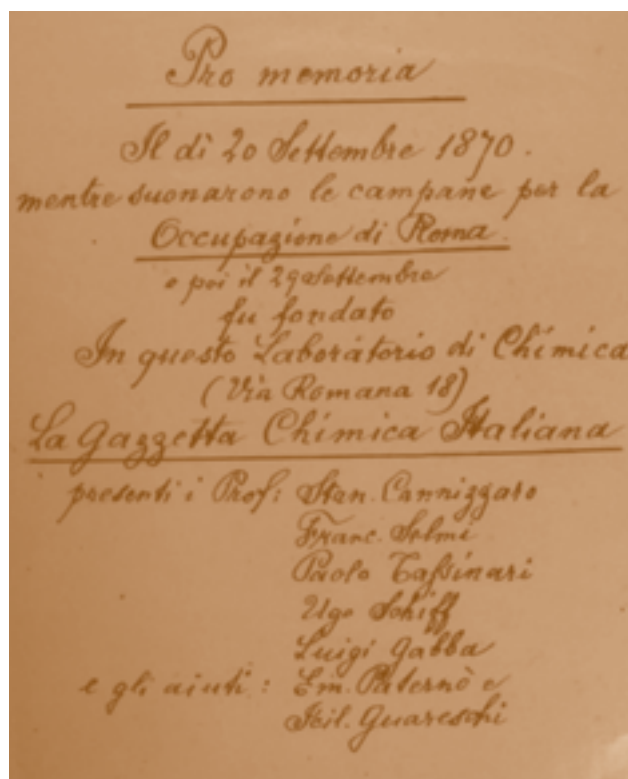 Pro memoria
Il dì 20 Settembre 1870.
mentre suonarono le campane per la
Occupazione di Roma.
e poi il 29 Settembre
fu fondato
In questo Laboratorio di Chimica
(Via Romana 18)
La Gazzetta Chimica Italiana
presenti i Prof: Stan. Cannizzaro
Franc. Selmi
Paolo Tassinari
Ugo Schiff
Luigi Gabba
e gli aiuti: Em. Paternò e
Icil. Guareschi